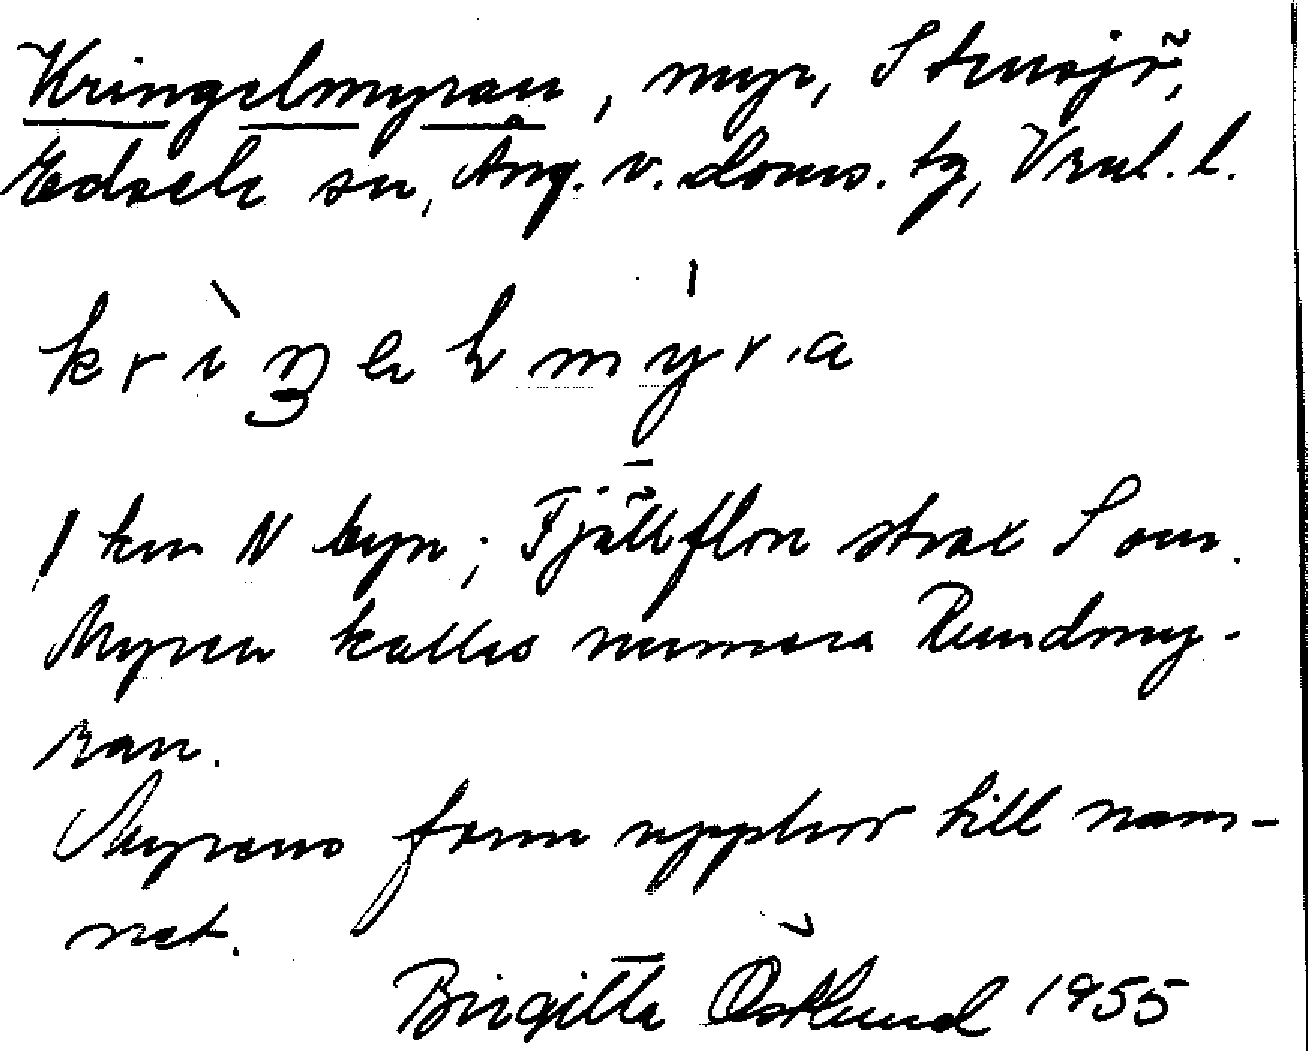 Kringelmyran, myr, Stensjö,
Edsele sn, Ång. v. doms. tg, Vnl. l.
1 km N byn; Fjällflon strax S om.
Myren kallas numera Rundmy-
ran.
Myrens form upphov till nam-
net.
Birgitta Östlund 1955